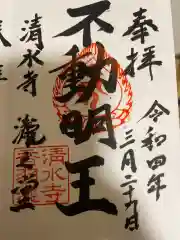 奉拝
令和四年
三月二十九日
不動明王
清水寺
瀧之堂
清水寺